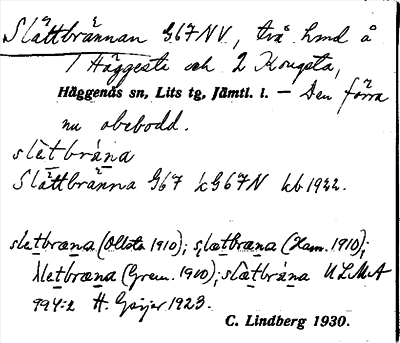 Slättbrännan G67NV., två hmd å
1 Häggesta och 2 Kougsta,
Häggenås sn, Lits tg, Jämtl. l. — Den förra
nu obebodd.
slètbrána
Slättbränna G67 kG67N kb1922.
sletbræna (Ollota 1910); slætbræna (Ham. 1910);
sletbræna (Grem. 1910); slætbrána ULMA
994:2 H. Geijer 1923.
C. Lindberg 1930.